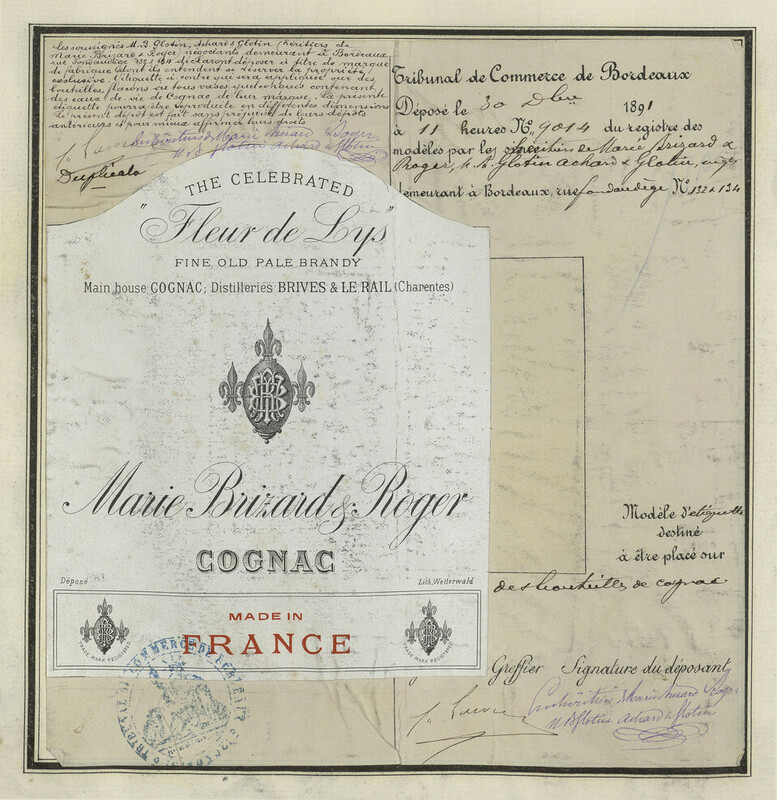 Les soussignés M. B. Glotin, Achard & Glotin (héritiers de
Marie Brizard & Roger) négociants demeurant à Bordeaux
rue Fondaudège 132 & 134 déclarent déposer à titre de marque
de fabrique (dont ils entendent se réserver la propriété
exclusive, l'étiquette ci-contre qui sera appliquée sur des
bouteilles, flacons ou tous vases quelconques contenant
des eaux-de-vie de Cognac de leur marque. La présente
étiquette pourra être reproduite en différentes dimensions
Le présent dépôt est fait sans préjudice de leurs dépôts
antérieurs et pour mieux affirmer leurs droits
héritiers de Marie Brizard & Roger
M. B. Glotin Achard & Glotin
Duplicata
Tribunal de Commerce de Bordeaux
Déposé le 30 Dbre 1891
à 11 heures No. 9014 du registre des
modèles par les héritiers de Marie Brizard &
Roger, M. B. Glotin Achard & Glotin,
demeurant à Bordeaux, rue fondaudège No 132 & 134
THE CELEBRATED
"Fleur de Lys"
FINE OLD PALE BRANDY
Main house COGNAC; Distilleriés BRIVES & LE RAIL (Charentes)
Marie Brizard & Roger
COGNAC
Déposé
Lith. Wetterwald
MADE IN
FRANCE
TRADE MARK REGISTERED
TRADE MARK REGISTERED
Modèle d'étiquette
destiné
à être placé sur
des bouteilles de cognac
Greffier Signature du déposant
héritiers de Marie Brizard & Roger
M. B. Glotin Achard & Glotin
TRIBUNAL DE COMMERCE DE BORDEAUX